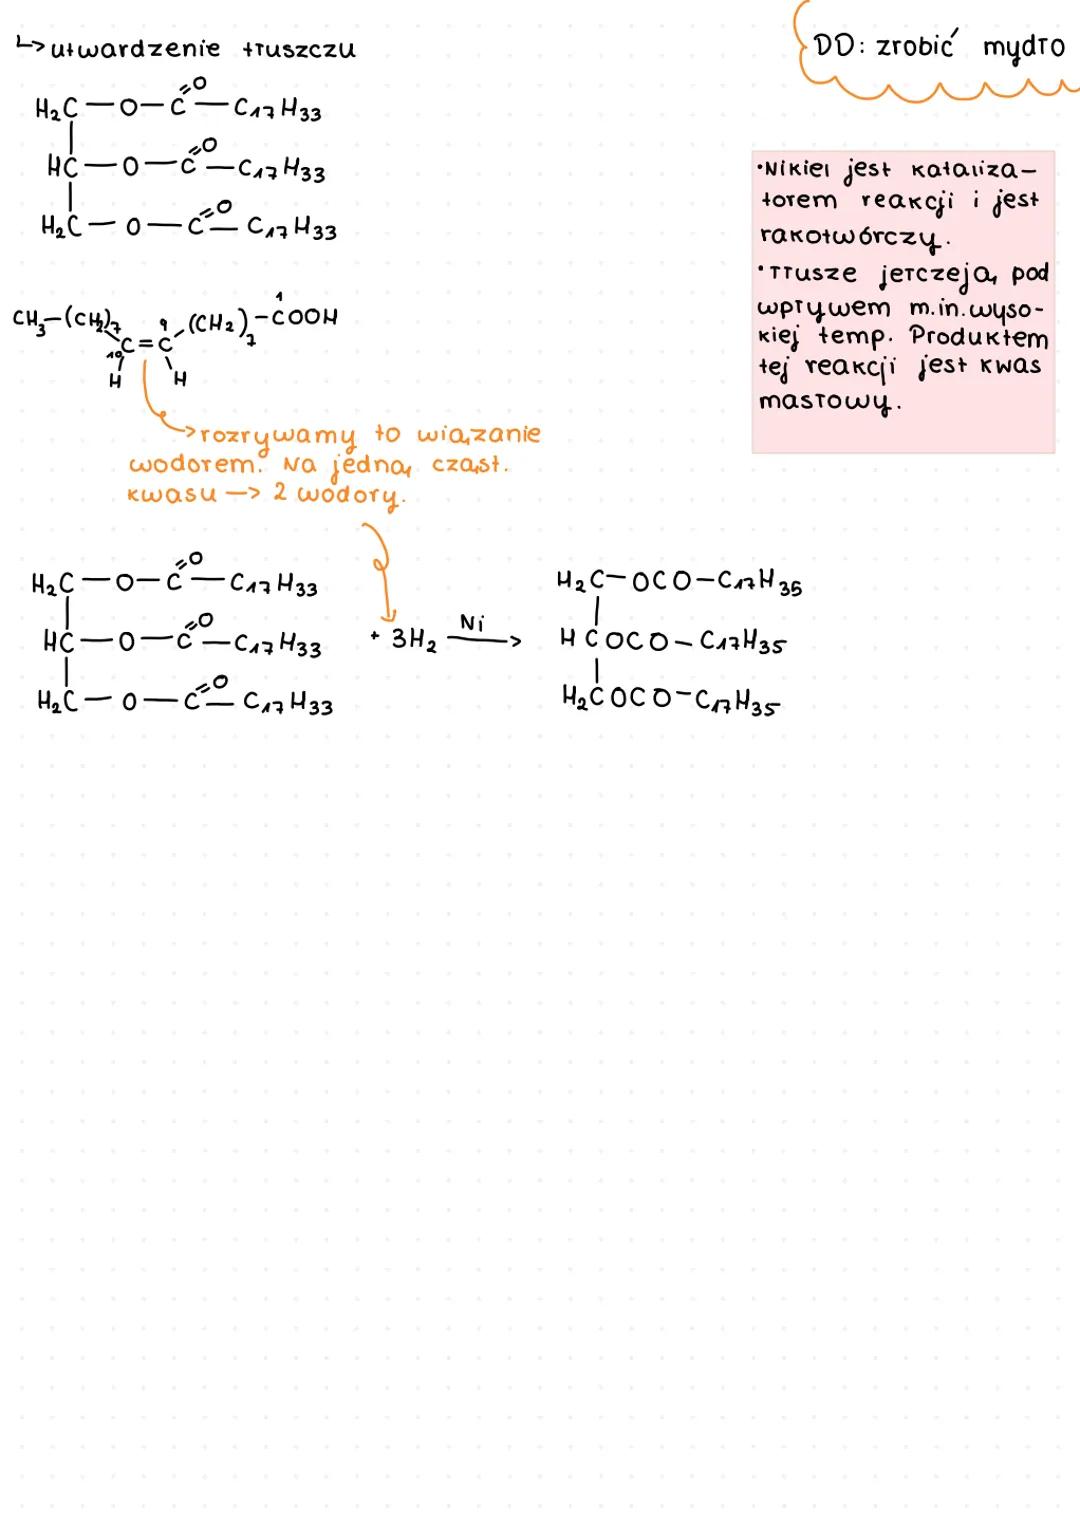 ↳ utwardzenie tłuszczu
DD: zrobić mydło
H₂C—O—C(=O)—C₁₇H₃₃
HC—O—C(=O)—C₁₇H₃₃
H₂C—O—C(=O)—C₁₇H₃₃
•Nikiel jest kataliza-
torem reakcji i jest
rakotwórczy.
•Tłusze jełczeją pod
wpływem m.in. wyso-
kiej temp. Produktem
tej reakcji jest kwas
masłowy.
1
CH₃—(CH₂)₇ 9 (CH₂)₇—COOH
10 C=C
H H
→rozrywamy to wiązanie
wodorem. Na jedną cząst.
kwasu —> 2 wodory.
H₂C—O—C(=O)—C₁₇H₃₃ H₂C—OCO—C₁₇H₃₅
HC—O—C(=O)—C₁₇H₃₃ + 3H₂ —Ni→ HCOCO—C₁₇H₃₅
H₂C—O—C(=O)—C₁₇H₃₃ H₂COCO—C₁₇H₃₅